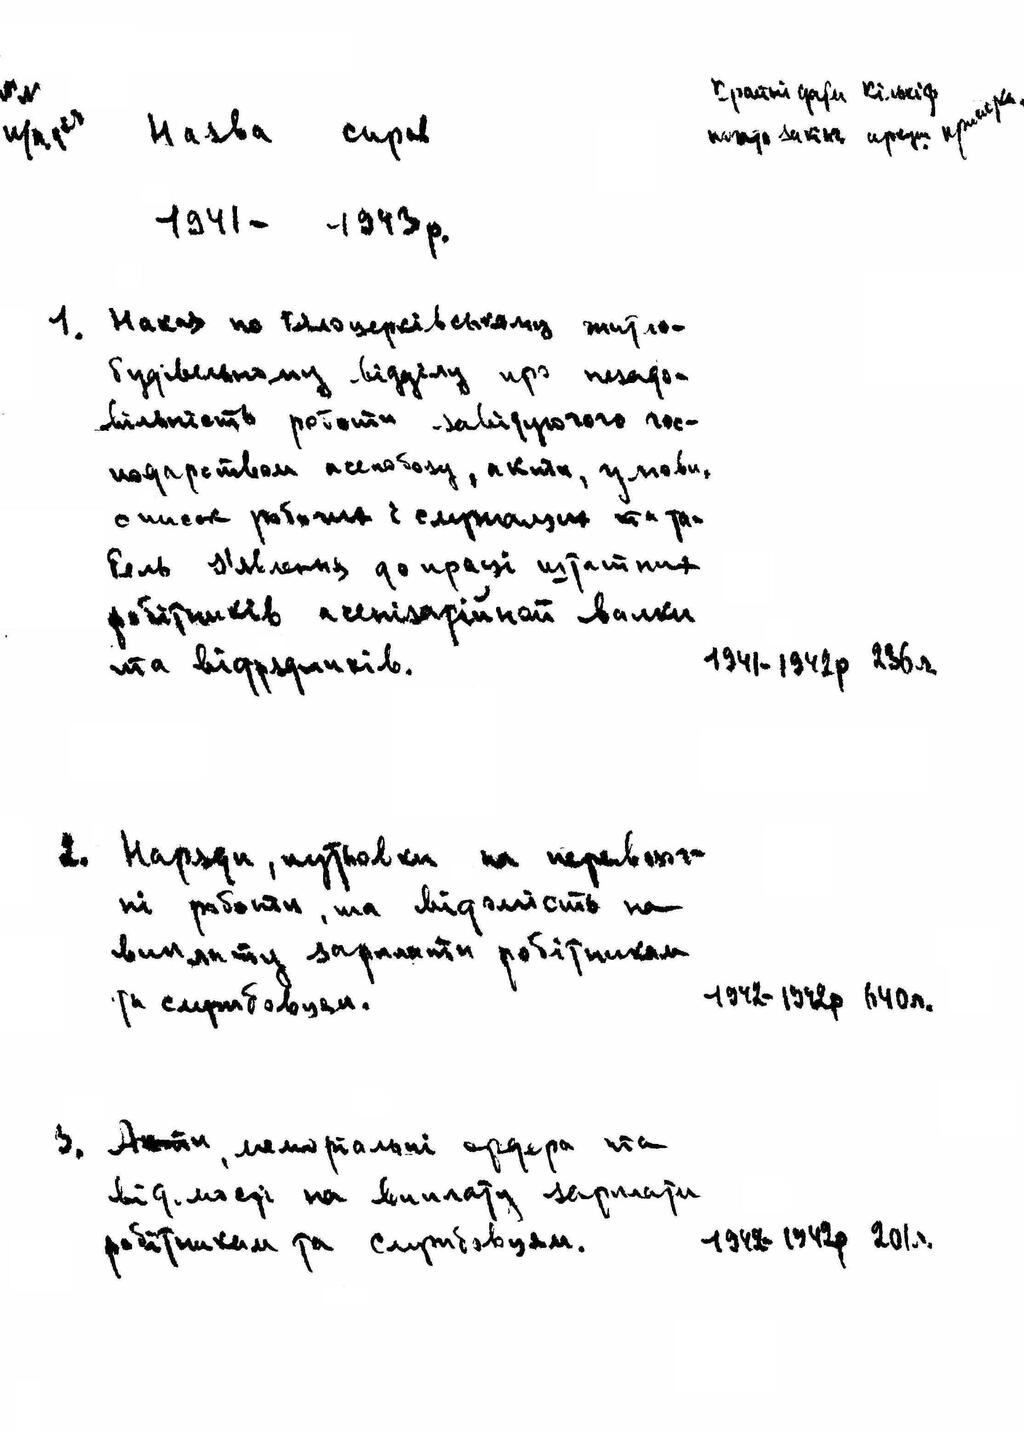 №№ Крайні дати Кількіс
п/п Назва справ почато закінч аркуш примітка
1941- -1943р.
1. Наказ по Білоцерківському житло-
будівельному відділу про незадо-
вільність роботи завідуючого гос-
подарством асенобозу, акти, умови,
список робочих і служащих та та-
бель з'явлення до праці штатних
робітників асенізаційной валки
та відрядників. 1941-1942р 236л.
2. Наряди, путьовки на перевозоч-
ні роботи, та відомість на
виплату зарплати робітникам
та службовцям. 1942-1942р 640л.
3. Акти, меморіальні ордера та
відомості на виплату зарплати
робітникам та службовцям. 1942-1942р 201л.